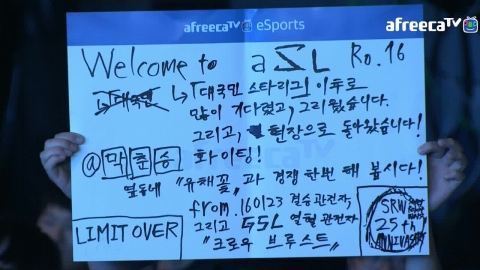 afreecaTV eSports
afreecaTV
Welcome to aSL Ro.16
↳「대국민 스타리그」 이후로
많이 기다렸고, 그리웠습니다.
그리고, 현장으로 돌아왔습니다!
@막춘승 화이팅!
옆동네 "유채꽃"과 경쟁 한번 해 봅시다!
from.160123 결승 관전자,
그리고 GSL 열혈 관전자
"크로우 브루스트"
LIMIT OVER
SRW
25th
ANNIVERSARY